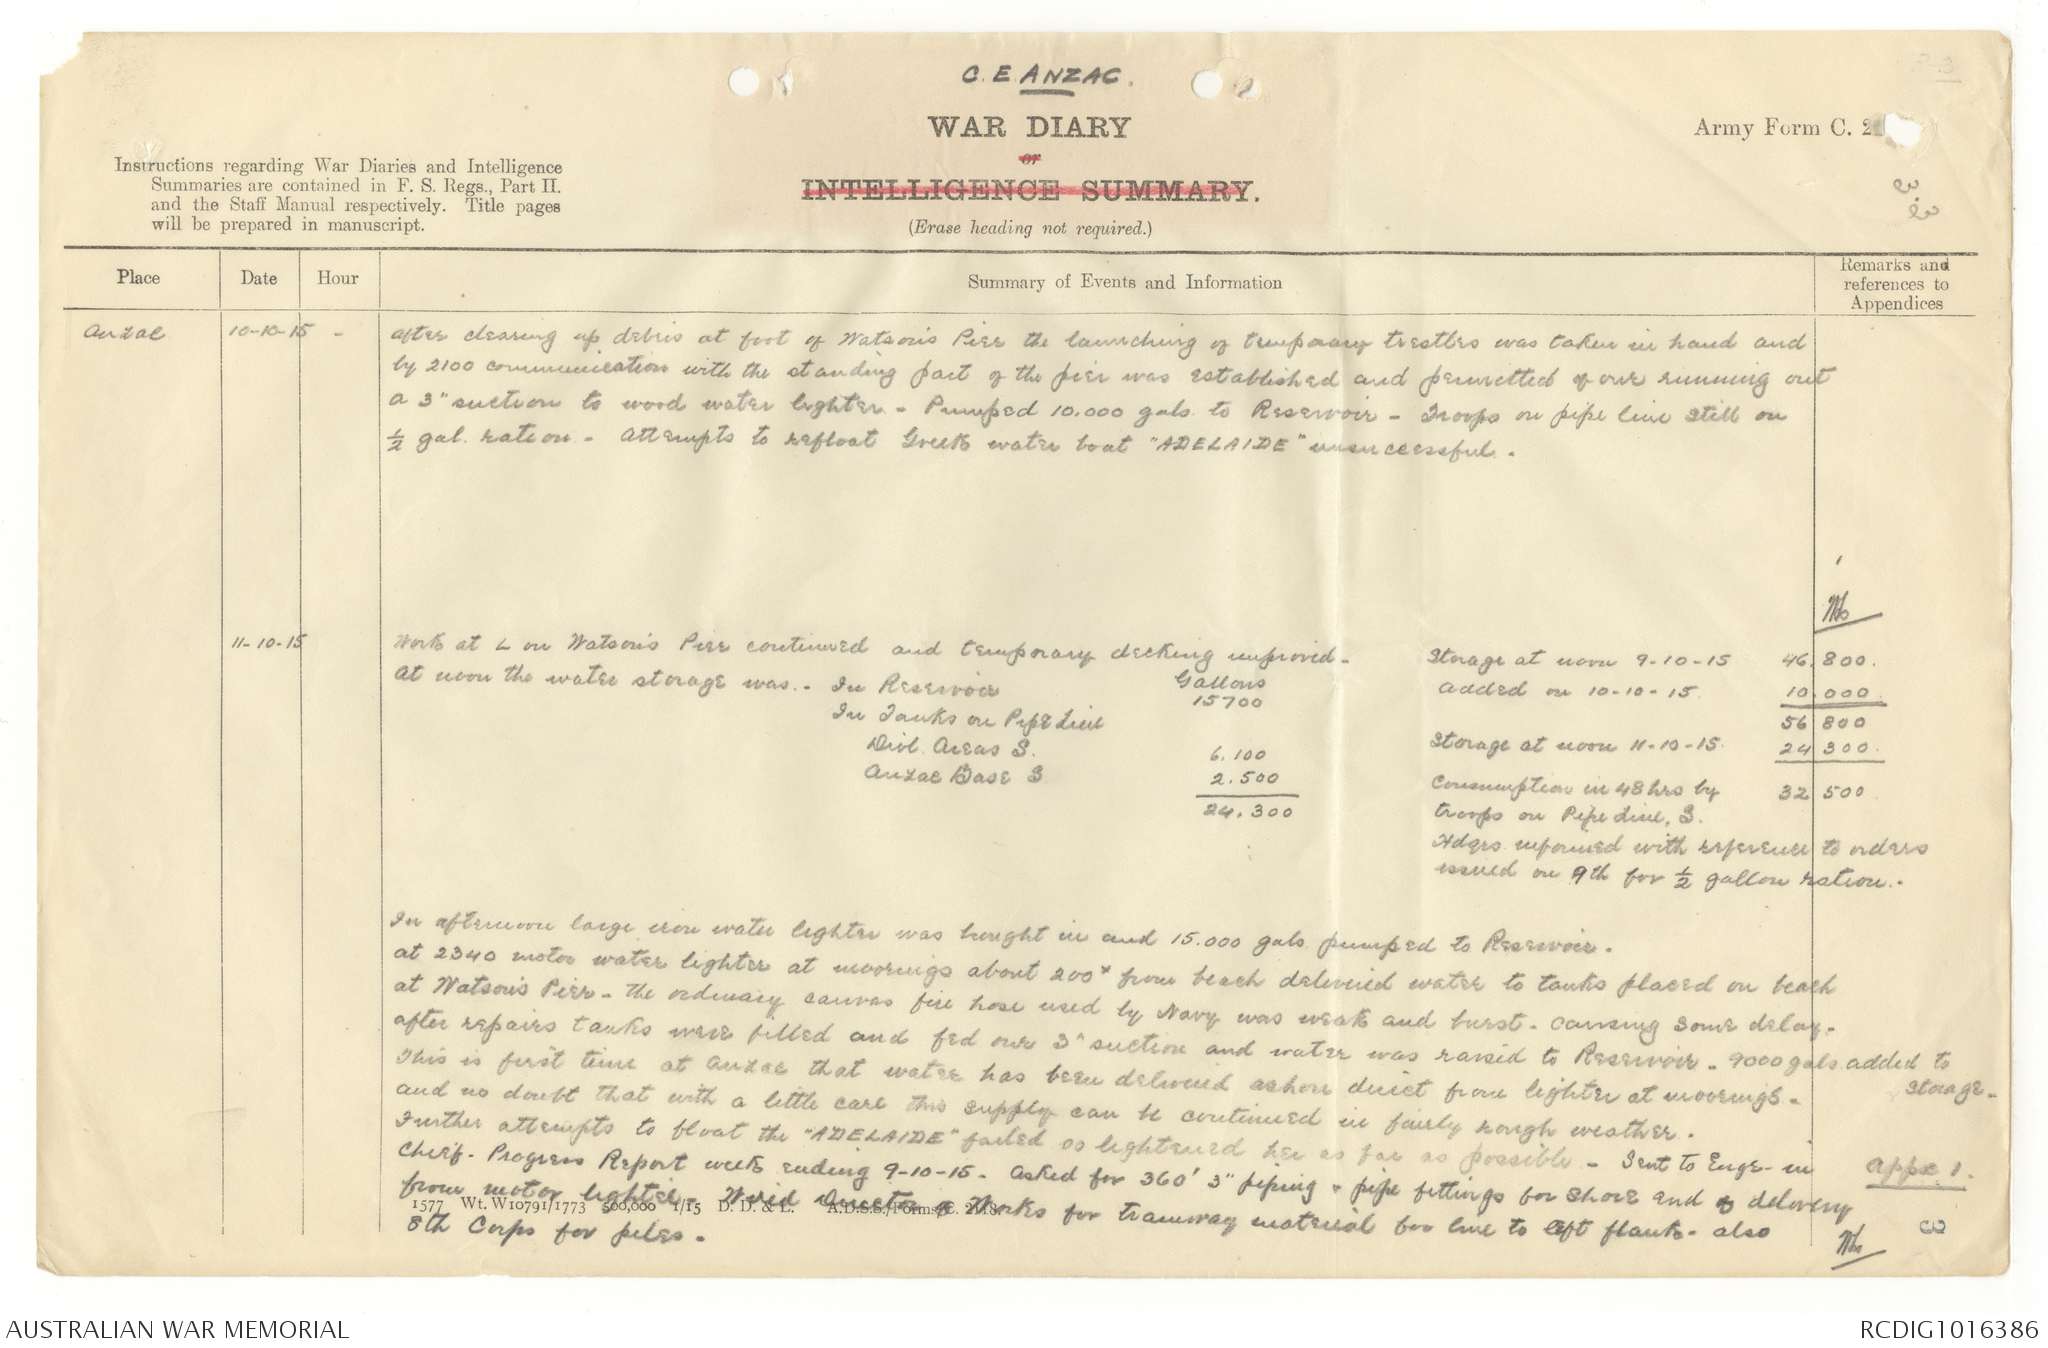 C. E ANZAC.
WAR DIARY
or
INTELLIGENCE SUMMARY.
(Erase heading not required.)
Army Form C. 2
Instructions regarding War Diaries and Intelligence
Summaries are contained in F. S. Regs., Part II.
and the Staff Manual respectively. Title pages
will be prepared in manuscript.
Place Date Hour Summary of Events and Information Remarks and references to Appendices
Anzac 10-10-15 - After clearing up debris at foot of Watson's Pier the launching of temporary trestles was taken in hand and
by 2100 communication with the standing part of the pier was established and permitted of our running out
a 3" suction to wood water lighter - Pumped 10.000 gals to Reservoir - Troops on pipe line still on
½ gal. ration - Attempts to refloat Greek water boat "ADELAIDE" unsuccessful.
11-10-15 Work at L on Watson's Pier continued and temporary decking improved -
At noon the water storage was. - In Reservoir Gallons 15700
In Tanks on Pipe Line
Divl. Areas S. 6.100
Anzac Base S 2.500
24.300
Storage at noon 9-10-15 46,800.
Added on 10-10-15. 10,000.
56 800
Storage at noon 11-10-15. 24 300.
Consumption in 48 hrs by 32 500
troops on Pipe Line, S.
Hdqrs informed with reference to orders
issued on 9th for ½ gallon ration. -
In afternoon large iron water lighter was bought in and 15.000 gals pumped to Reservoir.
At 2340 motor water lighter at moorings about 200ˣ from beach delivered water to tanks placed on beach
at Watson's Pier - The ordinary canvas fire hose used by Navy was weak and burst - causing some delay -
after repairs tanks were filled and fed our 3" suction and water was raised to Reservoir - 9000 gals added to
storage -
This is first time at Anzac that water has been delivered ashore direct from lighter at moorings -
and no doubt that with a little care this supply can be continued in fairly rough weather.
Further attempts to float the "ADELAIDE" failed so lightened her as far as possible - Sent to Engr - in
Chief - Progress Report week ending 9-10-15 - Asked for 360' 3" piping & pipe fittings for shore end of delivery
from motor lighter - Wired Director of Works for tramway material for line to left flank - also
8th Corps for piles -
Appx 1.
3
1577 Wt. W10791/1773 500,000 1/15 D. D. & L. A.D.S.S./Forms/C. 2118.
AUSTRALIAN WAR MEMORIAL
RCDIG1016386